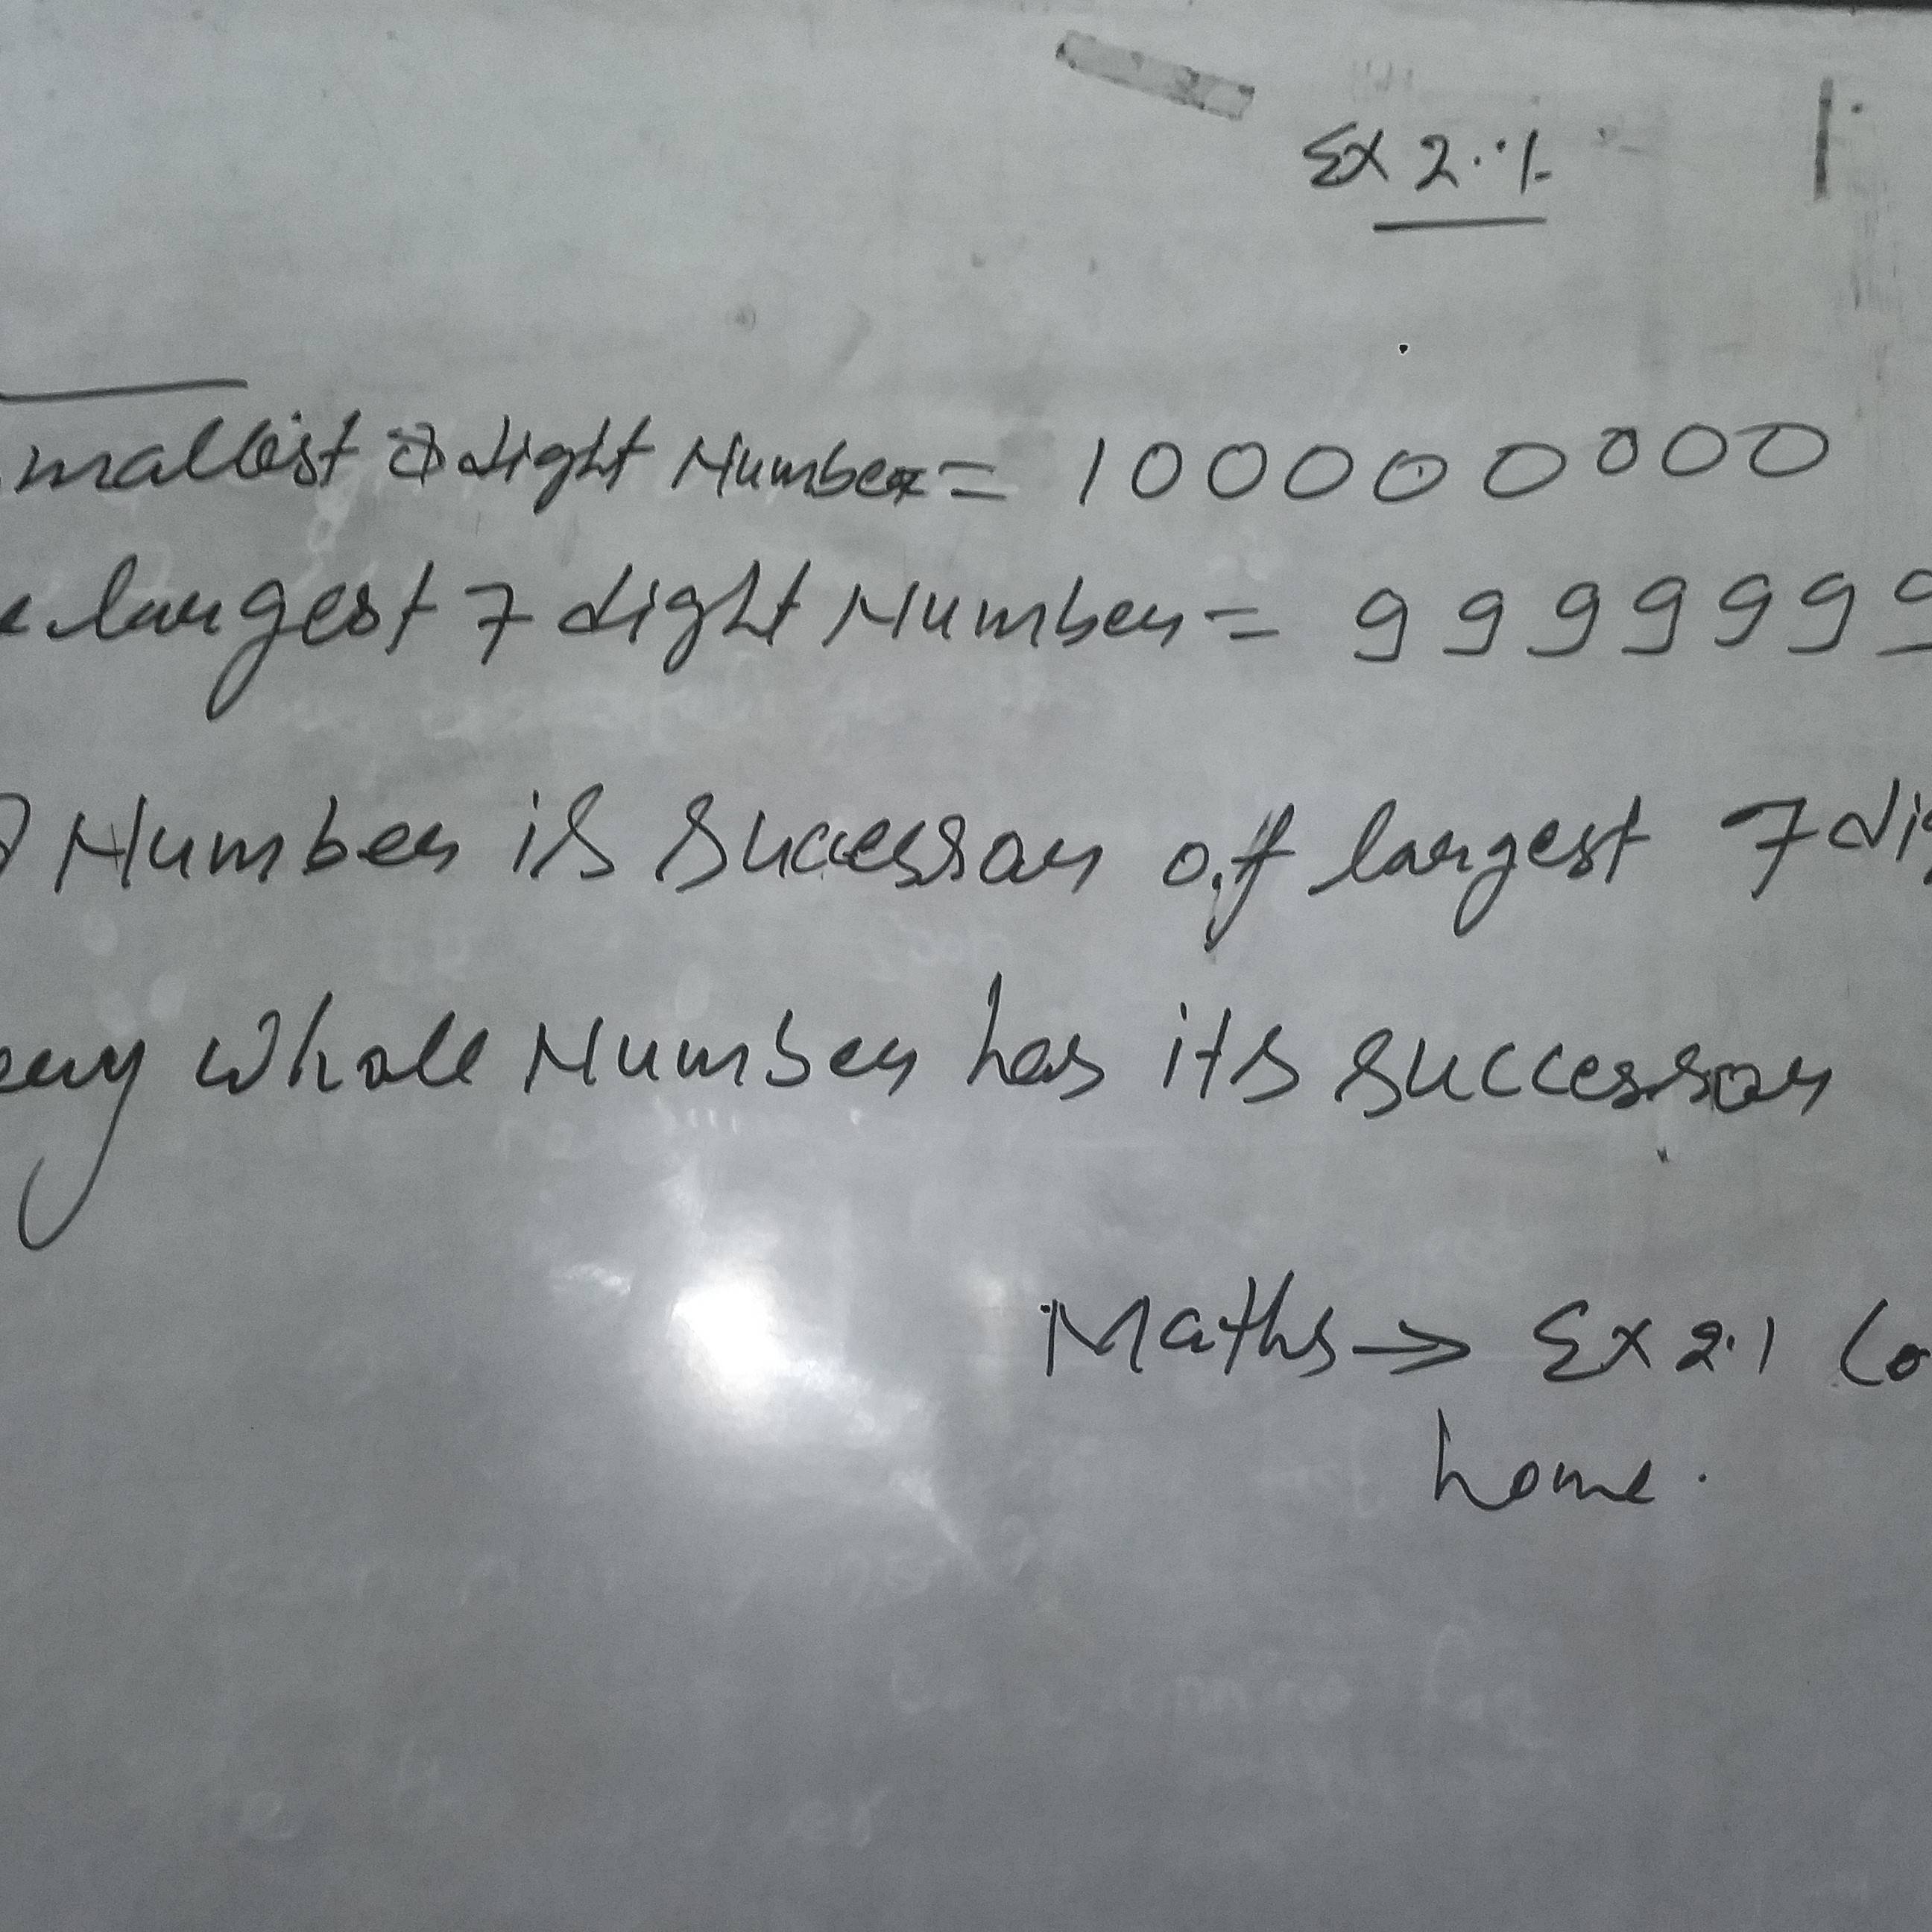 Ex 2.1
mallest dight Number = 100000000
largest 7 dight Number = 9999999
Number is successor of largest 7 di
whole Number has its successor
Maths → Ex 2.1 Co
home.